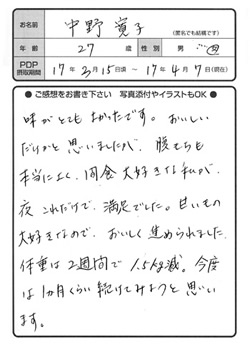 お名前 中野寛子 (匿名でも結構です)
年齢 27 歳 性別 男 女
PDP摂取期間 17年3月15日頃 〜 17年4月7日(現在)
●ご感想をお書き下さい 写真添付やイラストもOK●
味がとてもよかったです。おいしい
だけかと思いましたが、腹もちも
本当によく、間食大好きな私が、
夜これだけで、満足でした。甘いもの
大好きなので、おいしく進められました。
体重は2週間で1.5kg減。今度
は1カ月くらい続けてみようと思い
ます。